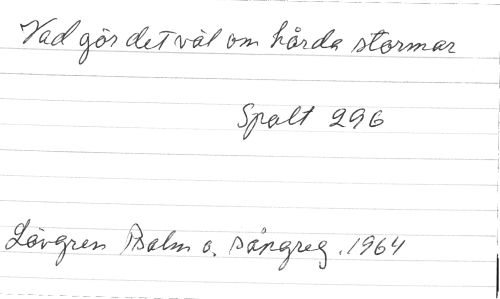 Vad gör det väl om hårda stormar
Spalt 296
Lövgren Psalm o. sångreg. 1964